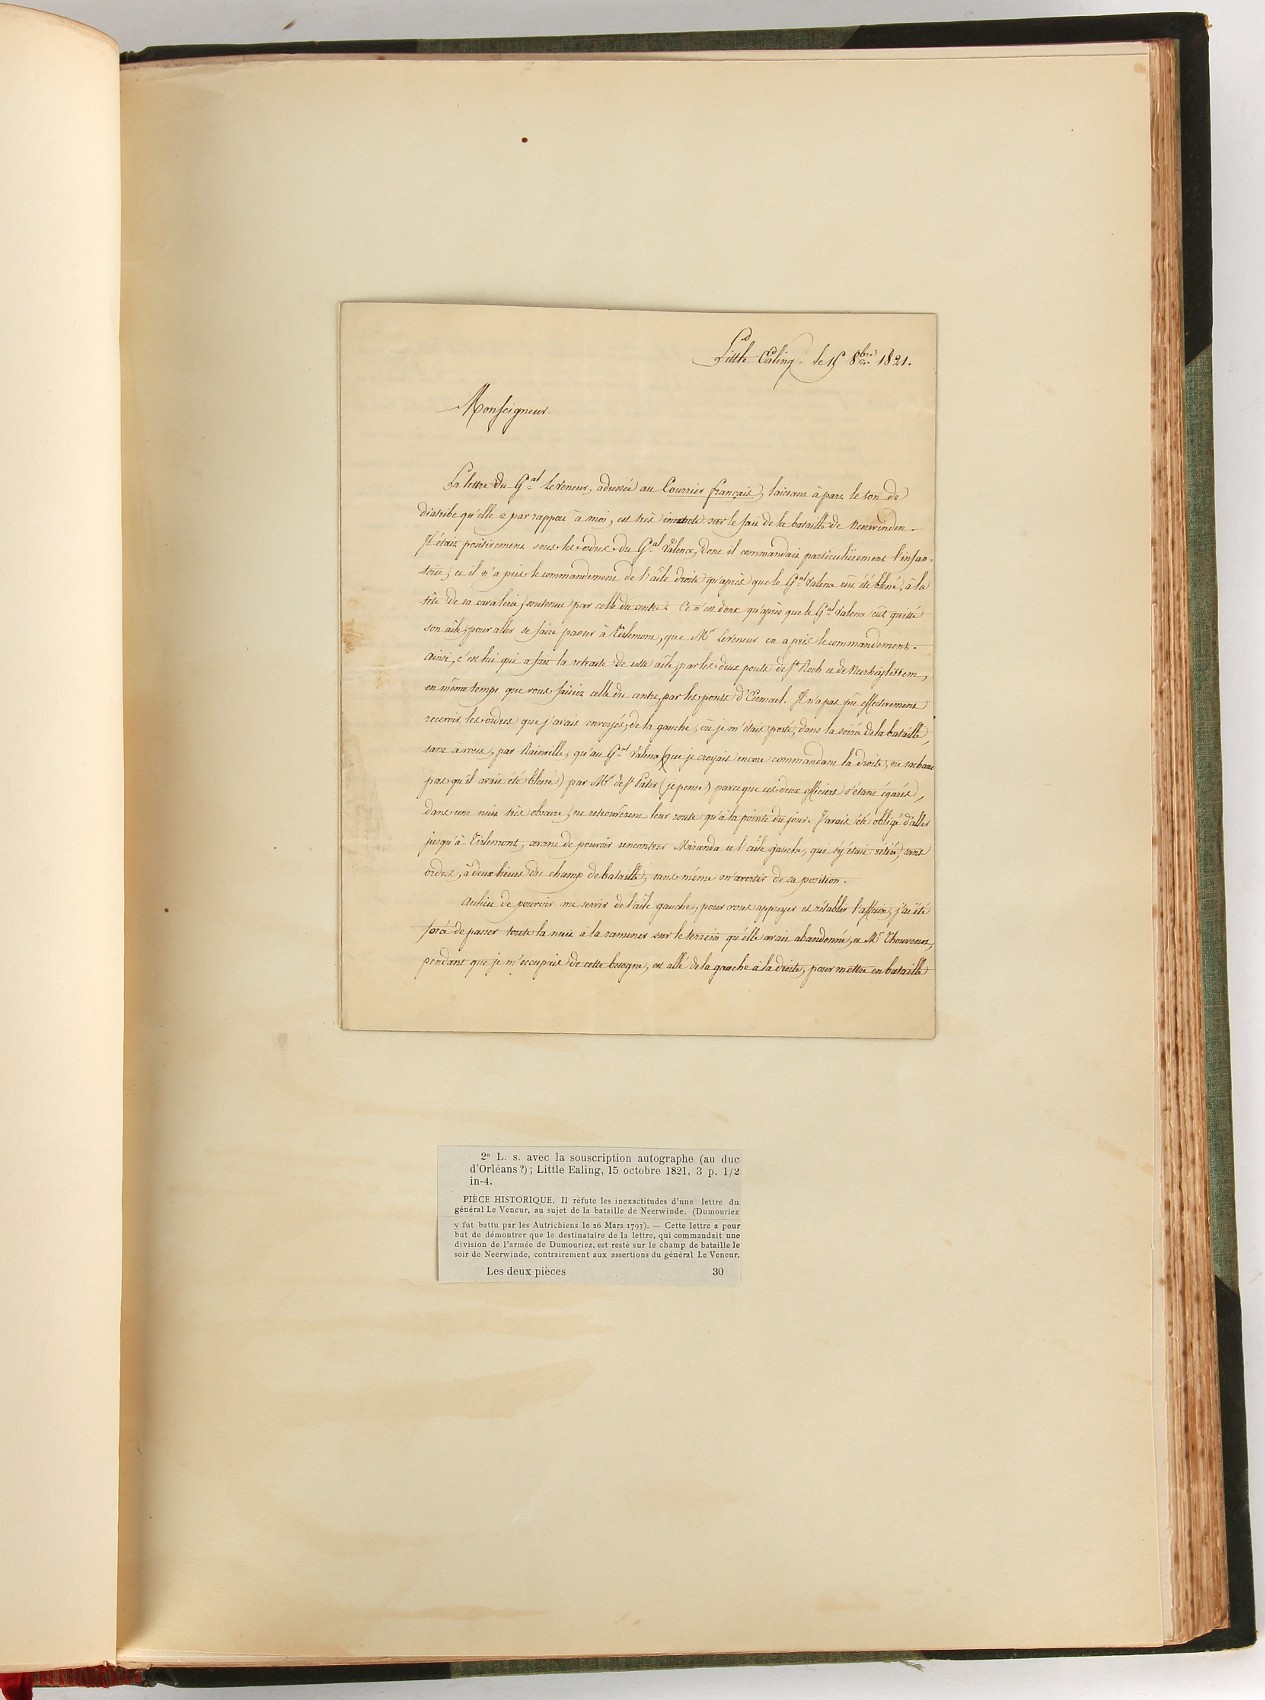 Little Ealing le 15 8bre 1821.
Monseigneur.
La lettre du Gal Leveneur, adressée au Courrier français, laissant à part le ton de
diatribe qu'elle a par rapport à moi, est très inexacte sur le fait de la bataille de Neerwinden.
Il était positivement sous les ordres du Gal Valence, dont il commandait particulièrement l'infan-
terie, et il n'a pris le commandement de l'aîle droite qu'après que le Gal Valence eût été blessé, à la
tête de sa cavalerie, soutenue par celle du centre. Ce n'est donc qu'après que le Gal Valence eût quitté
son aîle, pour aller se faire panser à Tirlemont, que Mr Leveneur en a pris le commandement.
Ainsi, c'est lui qui a fait la retraite de cette aîle, par les deux ponts de St Roch et de
en même temps que vous faisiez celle du centre, par les ponts d'Esemael. Il n'a pas pu effectivement
recevoir les ordres que j'avais envoyés, de la gauche, où je m'étais porté, dans la soirée de la bataille,
tant à vous, par Rainville, qu'au Gal Valence (que je croyais encore commandant la droite, ne sachant
pas qu'il avait été blessé) par Mr de St Pater (je pense) parceque ces deux officiers s'étant égarés,
dans une nuit très obscure, ne retrouvèrent leur route qu'à la pointe du jour. J'avais été obligé d'aller
jusqu'à Tirlemont, avant de pouvoir rencontrer Miranda et l'aîle gauche, qui s'y était retiré, sans
ordre, à deux lieues du champ de bataille, sans même m'avertir de sa position.
Aulieu de pouvoir me servir de l'aîle gauche, pour vous appuyer et rétablir l'affaire, j'ai été
forcé de passer toute la nuit à la ramener sur le terrein qu'elle avait abandonné, et Mr Thouvenot,
pendant que je m'occupais de cette besogne, est allé de la gauche à la droite, pour mettre en bataille
2o L. s. avec la souscription autographe (au duc
d'Orléans ?) ; Little Ealing, 15 octobre 1821, 3 p. 1/2
in-4.
PIÈCE HISTORIQUE. Il réfute les inexactitudes d'une lettre du
général Le Veneur, au sujet de la bataille de Neerwinde. (Dumouriez
y fut battu par les Autrichiens le 16 Mars 1793). — Cette lettre a pour
but de démontrer que le destinataire de la lettre, qui commandait une
division de l'armée de Dumouriez, est resté sur le champ de bataille le
soir de Neerwinde, contrairement aux assertions du général Le Veneur.
Les deux pièces 30